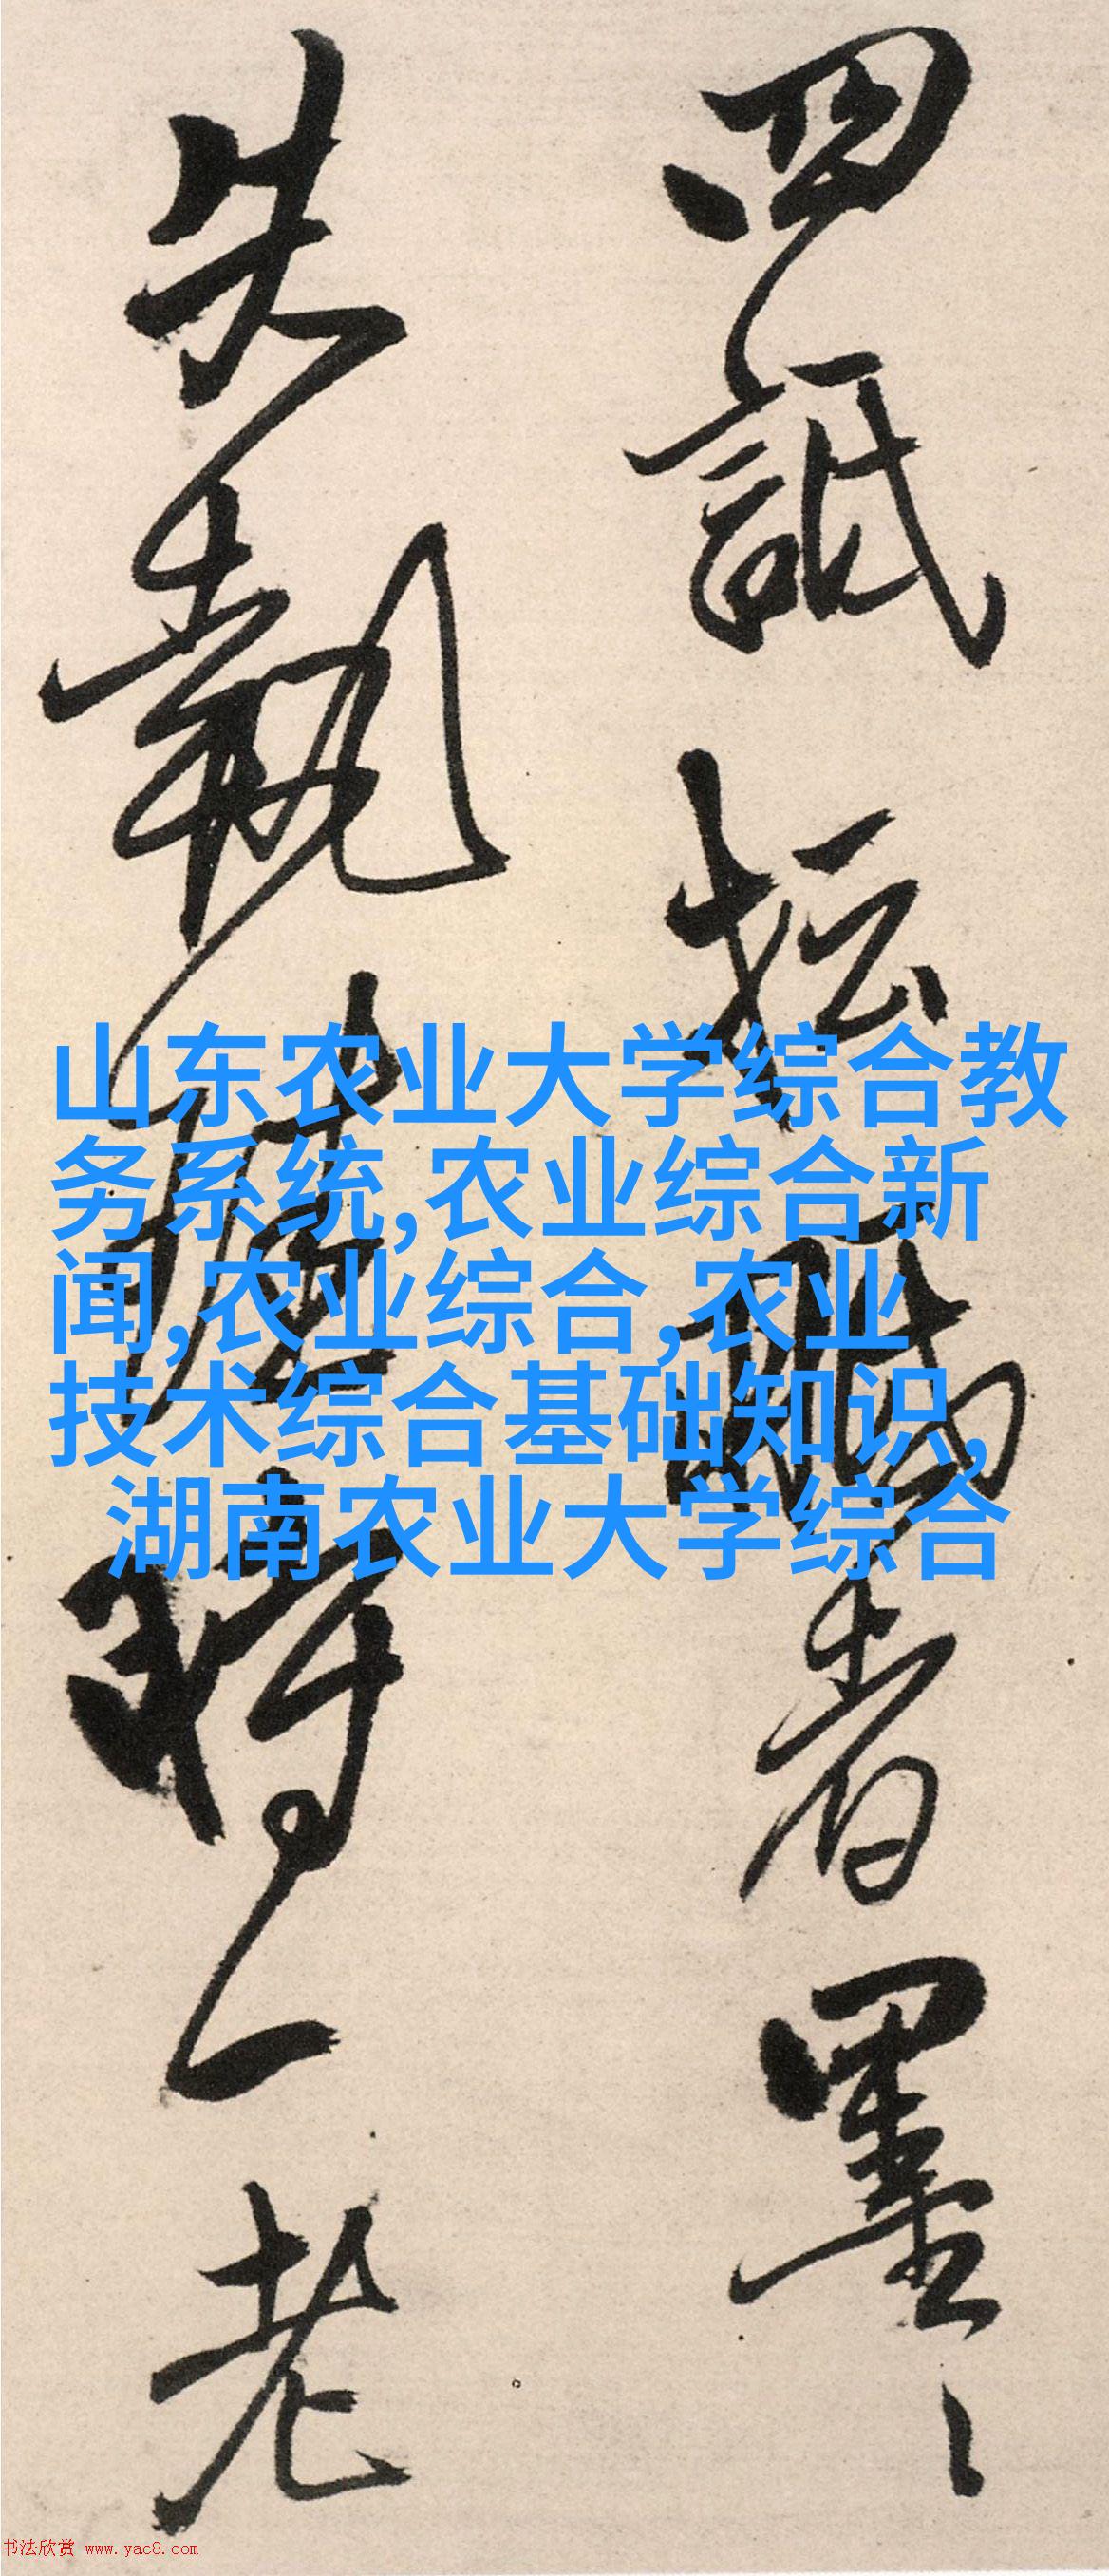 四詆抎者墨
失執將一老
山东农业大学综合教
务系统,农业综合新
闻,农业综合,农业
技术综合基础知识,
湖南农业大学综合
书法欣赏 www.yac8.com